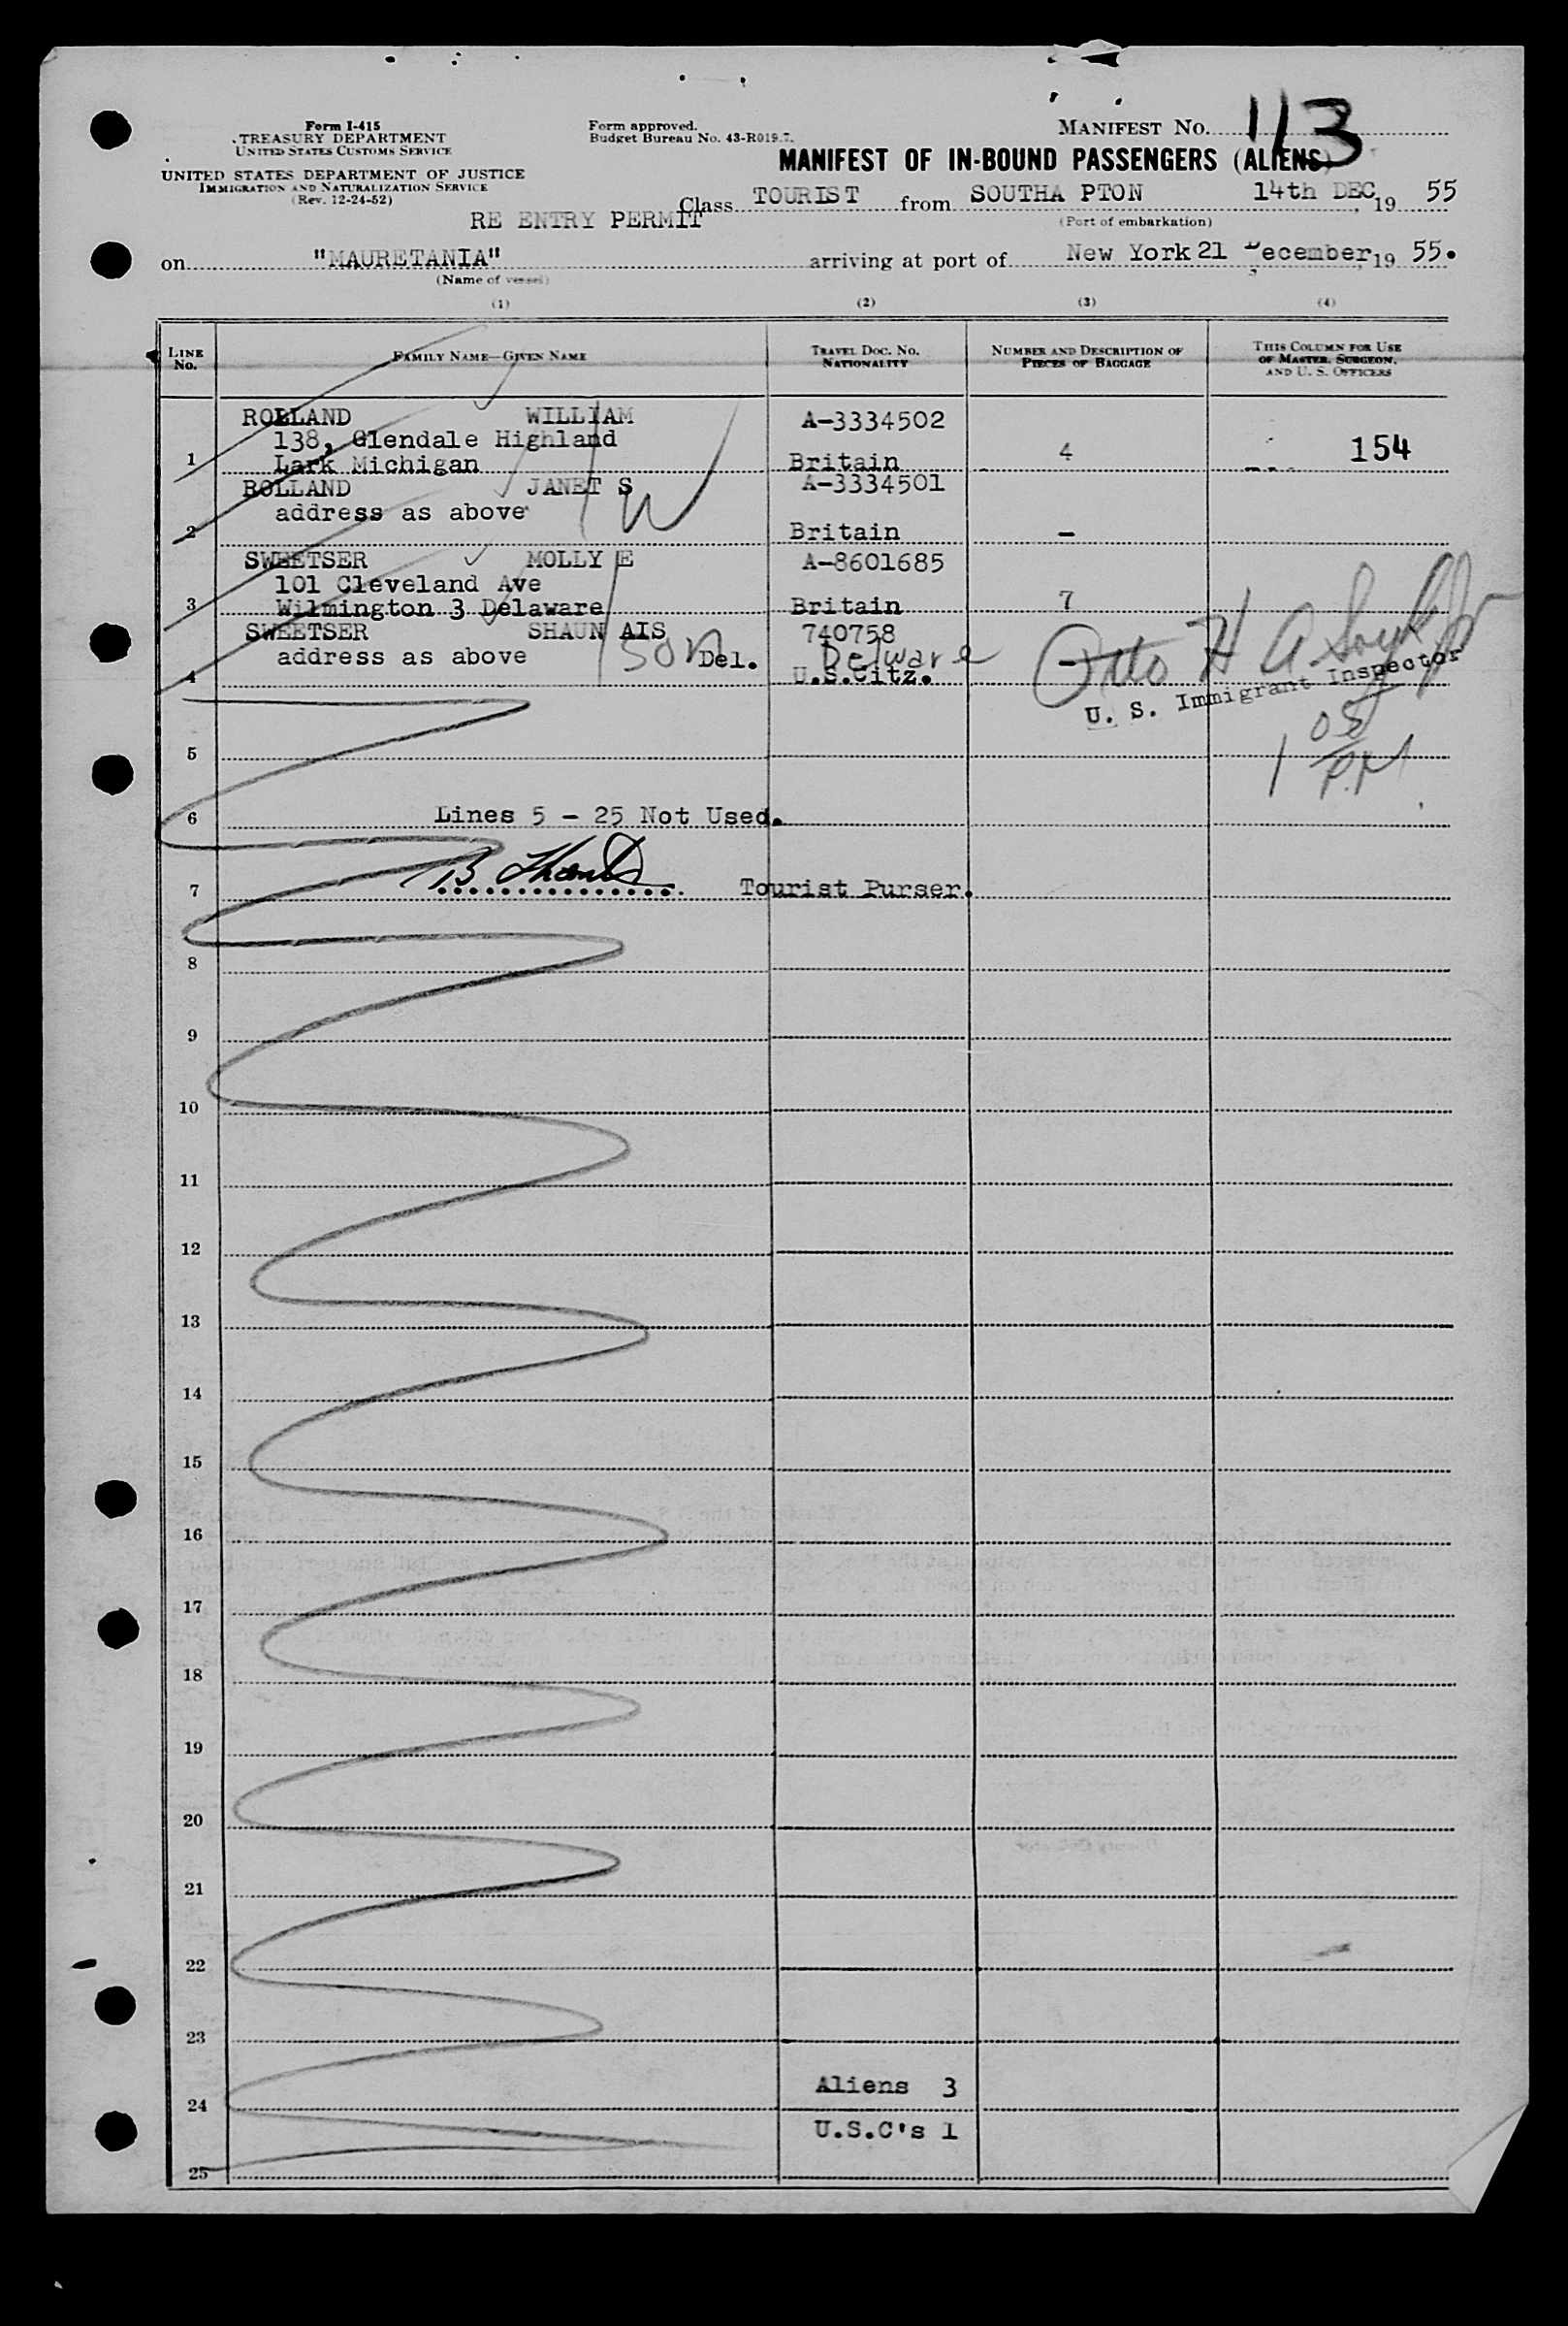 Form I-415
TREASURY DEPARTMENT
UNITED STATES CUSTOMS SERVICE
UNITED STATES DEPARTMENT OF JUSTICE
IMMIGRATION AND NATURALIZATION SERVICE
(Rev. 12-24-52)
Form approved.
Budget Bureau No. 43-R019.7.
MANIFEST NO. 113
MANIFEST OF IN-BOUND PASSENGERS (ALIENS)
Class TOURIST from SOUTHA PTON 14th DEC, 19 55
(Port of embarkation)
RE ENTRY PERMIT
on "MAURETANIA" arriving at port of New York 21 December, 19 55.
(Name of vessel)
(1) (2) (3) (4)
LINE No. FAMILY NAME—GIVEN NAME TRAVEL DOC. NO. NATIONALITY NUMBER AND DESCRIPTION OF PIECES OF BAGGAGE THIS COLUMN FOR USE OF MASTER, SURGEON, AND U. S. OFFICERS
ROLLAND WILLIAM A-3334502
138, Glendale Highland
1 Lark Michigan Britain 4 154
ROLLAND JANET S A-3334501
address as above W
2 Britain -
SWEETSER MOLLY E A-8601685
101 Cleveland Ave
3 Wilmington 3 Delaware Britain 7
SWEETSER SHAUN AIS 740758
address as above son Del. Delware
4 U.S.Citz. -
Otto H A
U. S. Immigrant Inspector
1 05 P.M
5
6 Lines 5 - 25 Not Used.
7 B Tourist Purser.
8
9
10
11
12
13
14
15
16
17
18
19
20
21
22
23
24 Aliens 3
U.S.C's 1
25